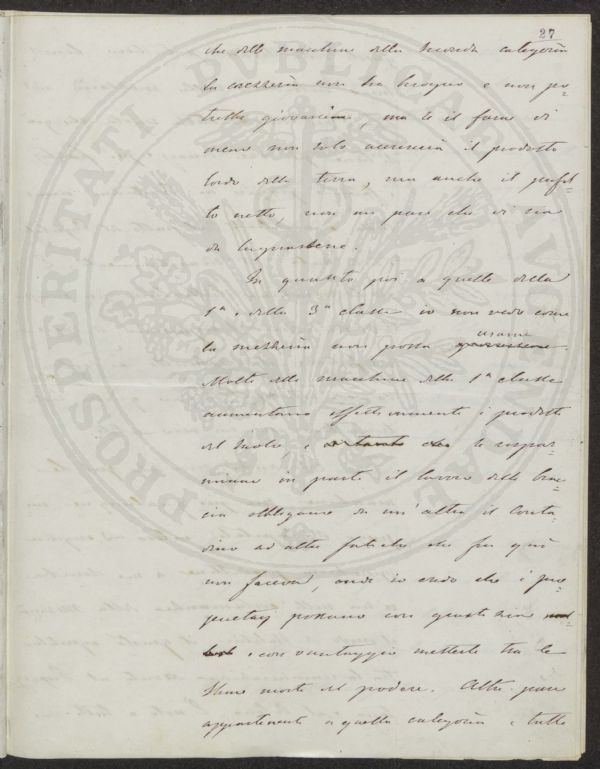 27
che delle macchine della seconda categoria
la mezzeria non ha bisogno e non po-
trebbe giovarsene, ma se il farne di
meno non solo accrescerà il prodotto
lordo della terra, ma anche il profit-
to netto, non mi pare che vi sia
da lagnarsene.
In quanto poi a quelle della
1ª e della 3ª classe io non vedo come
la mezzeria non possa usarne
Molte delle macchine della 1ª classe
aumentano effettivamente i prodotti
del suolo, e se rispar-
miano in parte il lavoro delle brac-
cia obbligano da un'altra il conta-
dino ad altre fatiche che fin quì
non faceva, onde io credo che i pro-
prietarj possano con giustizia
e con vantaggio metterle tra le
stime morte del podere. Altre pure
appartenenti a quella categoria e tutte
PROSPERITATI PVBLICAE AVGENDAE